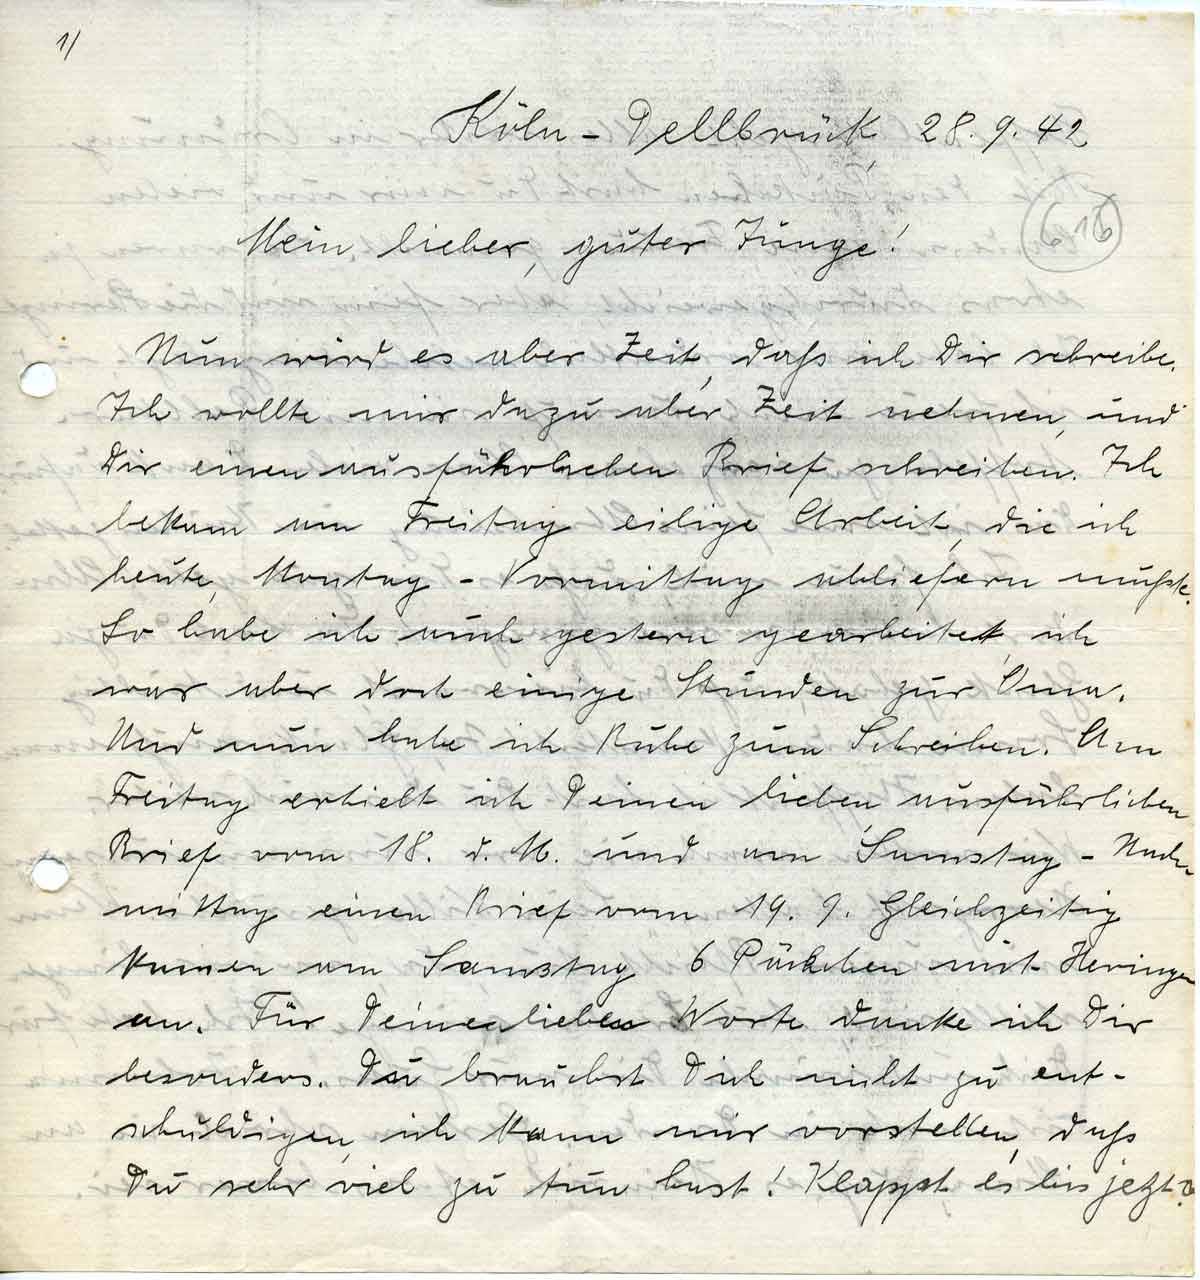 1/
Köln-Dellbrück, 28.9.42
616
Mein lieber, guter Junge!
Nun wird es aber Zeit, daß ich Dir schreibe.
Ich wollte mir dazu aber Zeit nehmen, und
Dir einen ausführlichen Brief schreiben. Ich
bekam am Freitag eilige Arbeit, die ich
heute, Montag-Vormittag abliefern mußte.
So habe ich auch gestern gearbeitet, ich
war aber doch einige Stunden zur Oma.
Und nun habe ich Ruhe zum Schreiben. Am
Freitag erhielt ich Deinen lieben, ausführlichen
Brief vom 18. d. M. und am Samstag-Nach-
mittag einen Brief vom 19. 9. Gleichzeitig
kamen am Samstag 6 Päckchen mit Heringen
an. Für Deine lieben Worte danke ich Dir
besonders. Du brauchst Dich nicht zu ent-
schuldigen, ich kann mir vorstellen, daß
Du sehr viel zu tun hast! Klappt es bis jetzt?